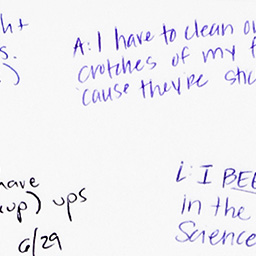 ht
s.
)
A: I have to clean
crotches of my
'cause they're
have
up) ups
6/29
L: I BEE
in the
Science